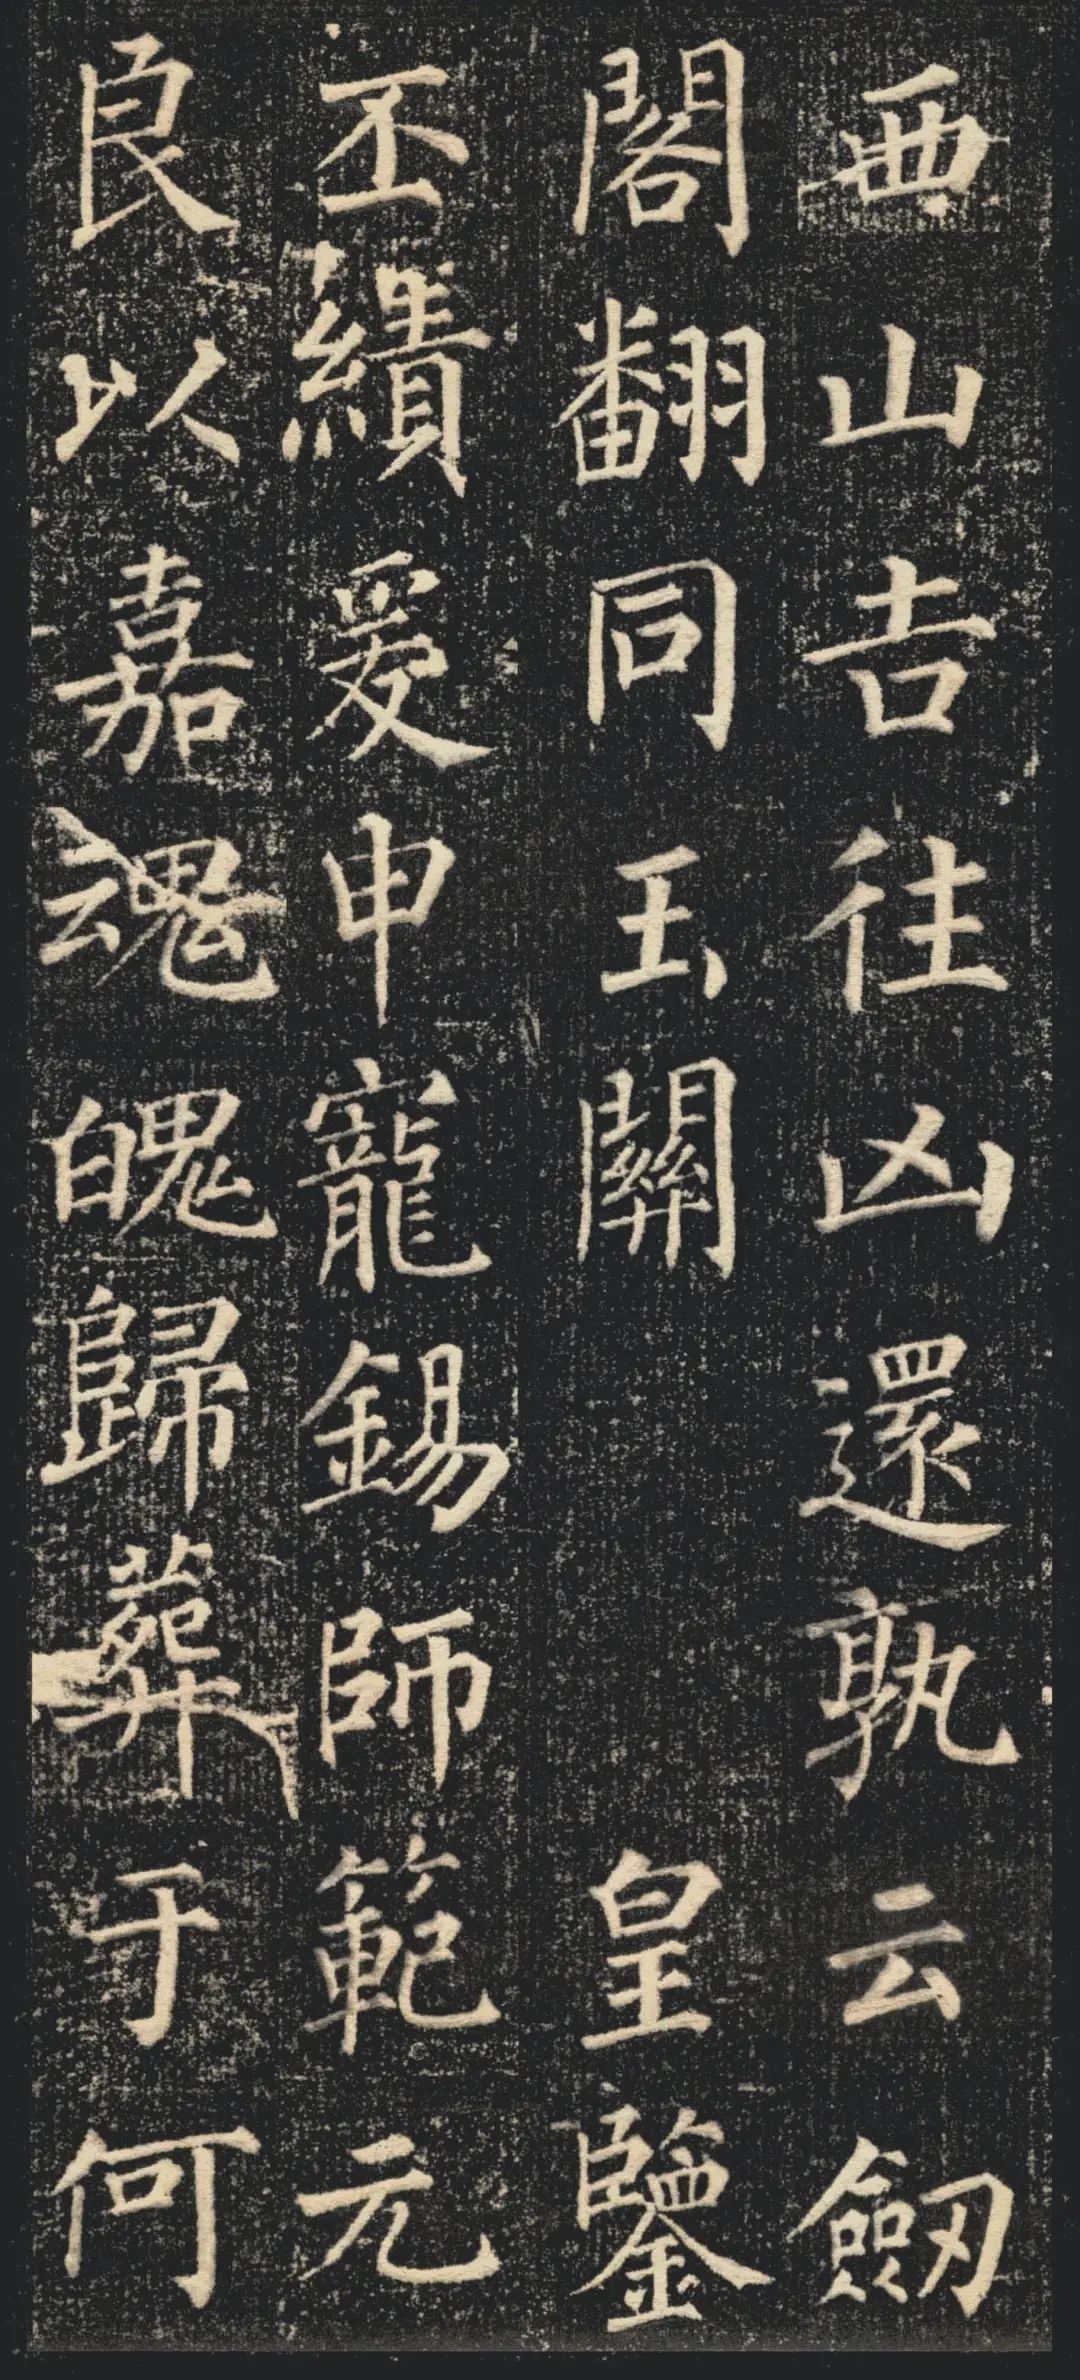 西山吉往凶還孰云劒
閣翻同玉關皇鑒
丕績爰申寵錫師範元
良以嘉魂魄歸葬于何